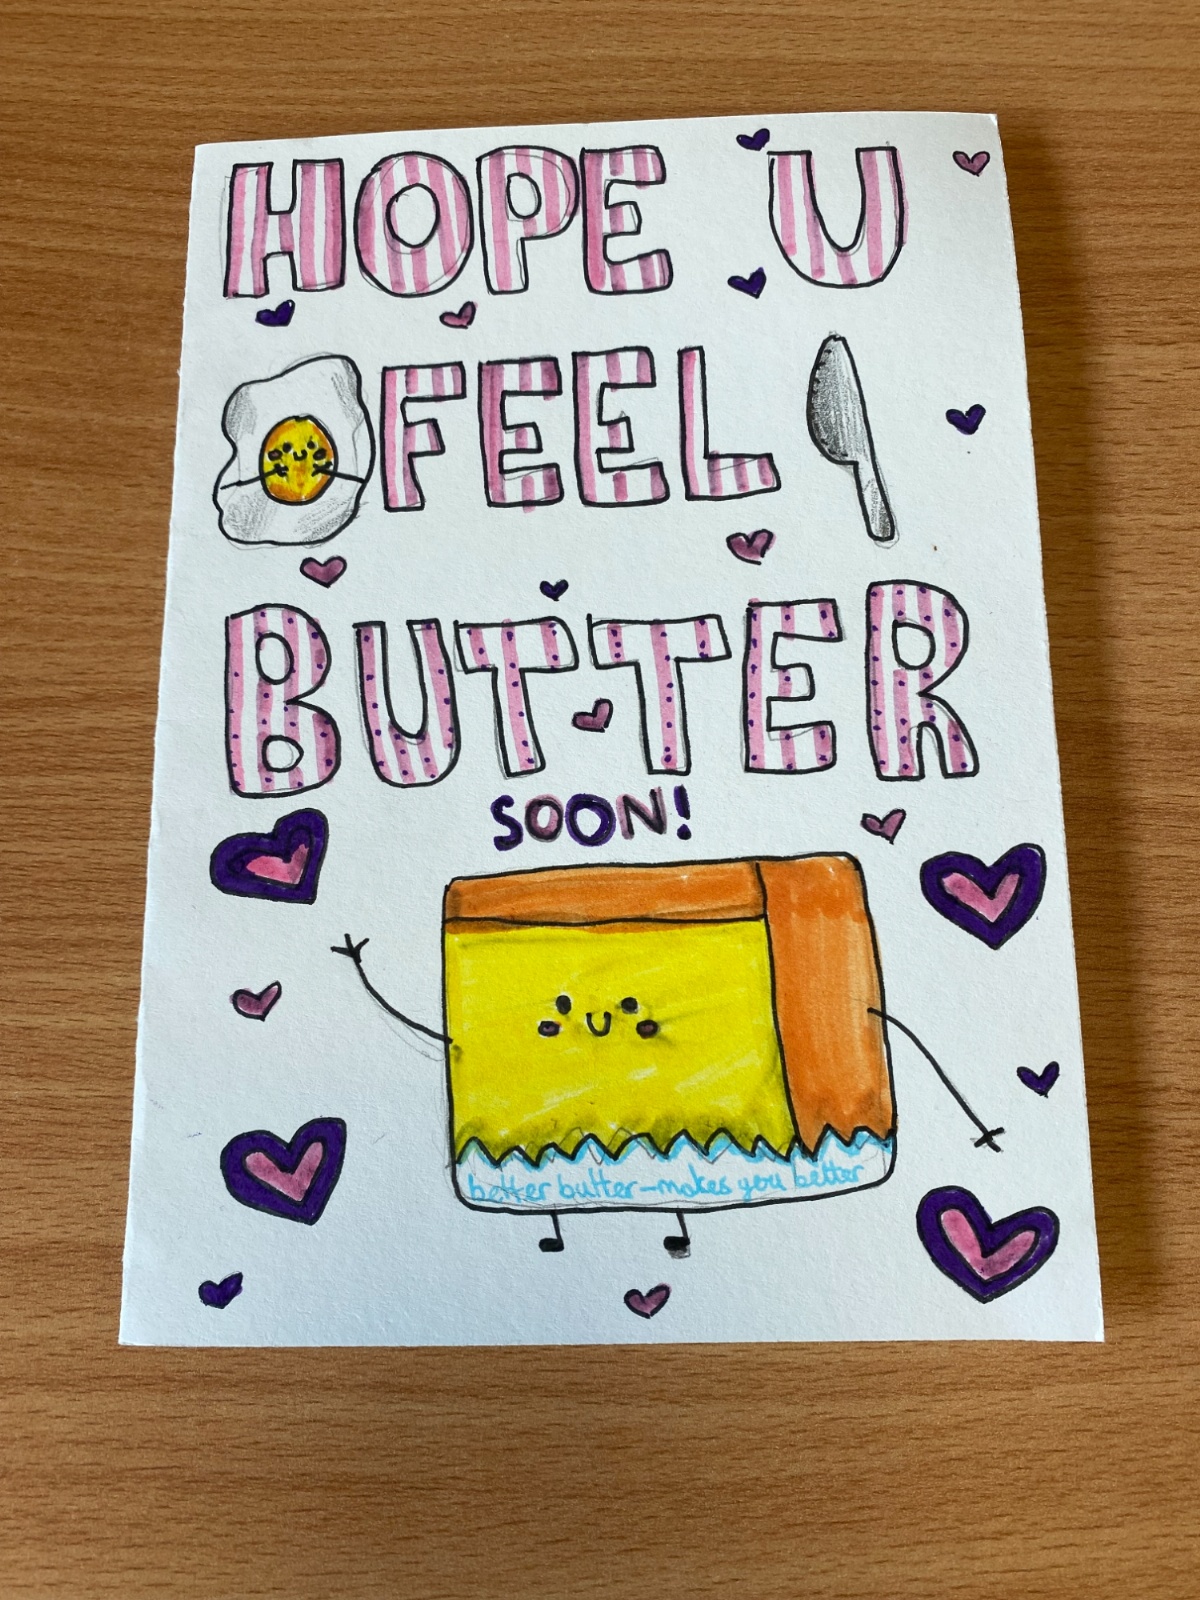 HOPE U
FEEL
BUTTER
SOON!
better butter-makes you better